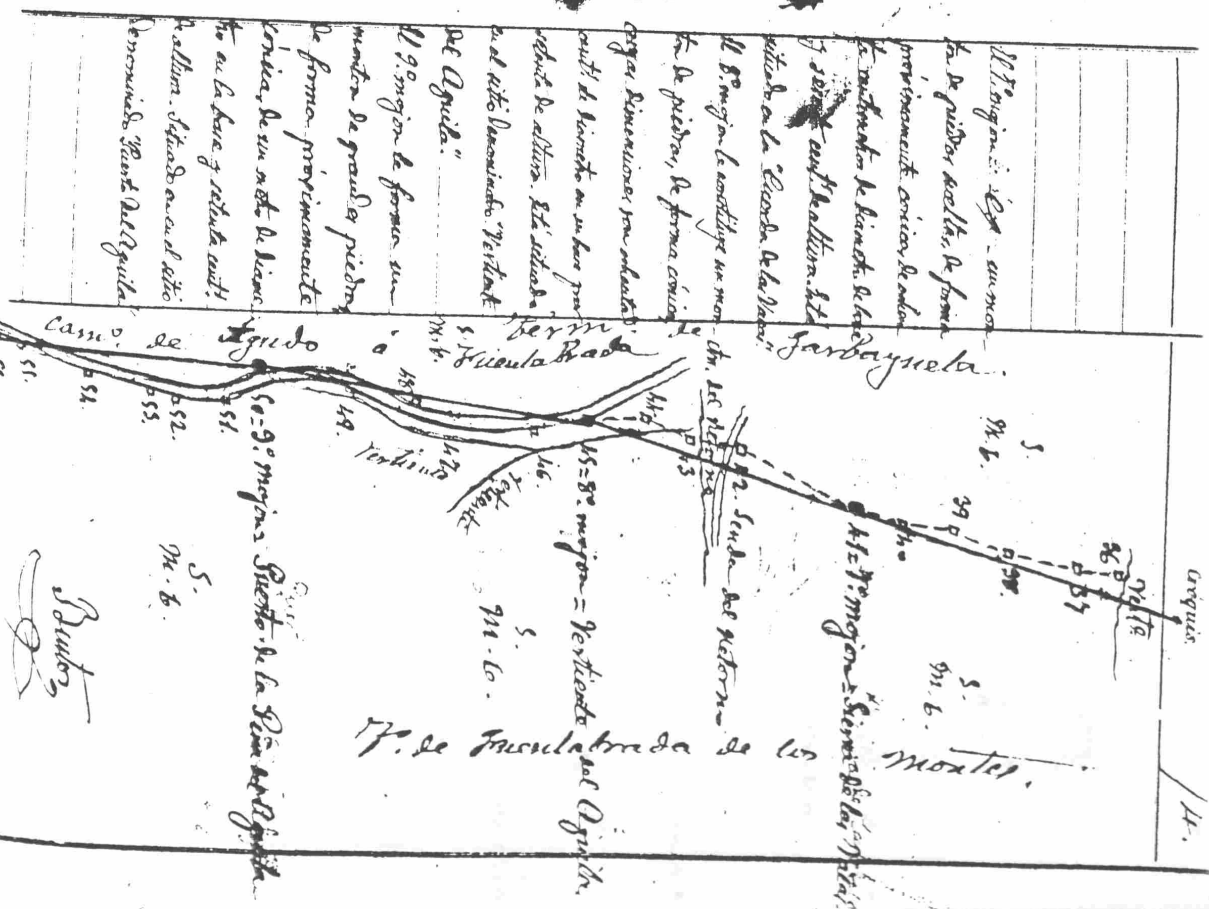 Cróquis.
14.
El 7º mojon
ton de piedras sueltas, de forma
proximamente cónica, de
centimetros de diametro de la base
y cent.s de altura. Está
situado en la "Cuerda de la
El 8º mojon le constituye un mon
ton de piedras, de forma cónica
cuyas dimensiones son
cent.s de diametro en su base por
setenta de altura. Está situado
en el sitio denominado "Vertiente
del Aguila."
El 9º mojon le forma un
monton de grandes piedras
de forma proximamente
cónica, de un metro de diame
tro en la base y setenta cent.s
de altura. Situado en el sitio
denominado "Puerto del Aguila
Térmº de Garbayuela.
Camº de Agudo á Fuenlabrada
S.
M. b.
S.
M. b.
Verte
36
37
38.
39
40
41=7º mojon= Sierra de las
42. Senda del Retorno
Cno. del Retorno
43
44
45=8º mojon= Vertiente del Aguila.
46.
Vertiente
47
Vertiente
48
49.
50=9º mojon= Puerto de la Peña del Aguila
51.
52.
53.
54.
55.
S.
M. b.
S.
M. b.
S.
M. b.
Tº. de Fuenlabrada de los Montes.